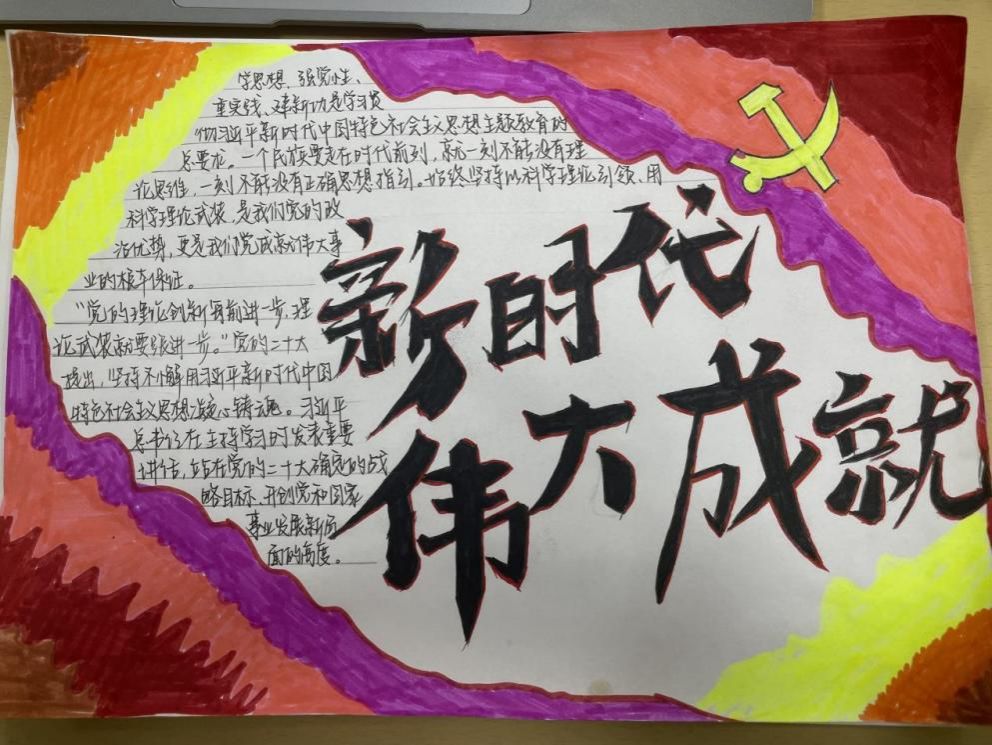 学思想、强党性、
重实践、建新功是学习贯
彻习近平新时代中国特色社会主义思想主题教育的
总要求。一个民族要走在时代前列,就一刻不能没有理
论思维,一刻不能没有正确思想指引。始终坚持以科学理论引领、用
科学理论武装,是我们党的政
治优势,更是我们党成就伟大事
业的根本保证。
"党的理论创新每前进一步,理
论武装就要跟进一步。"党的二十大
提出,坚持不懈用习近平新时代中国
特色社会主义思想凝心铸魂。习近平
总书记在主持学习时发表重要
讲话,站在党的二十大确定的战
略目标、开创党和国家
事业发展新局
面的高度。
新时代
伟大成就